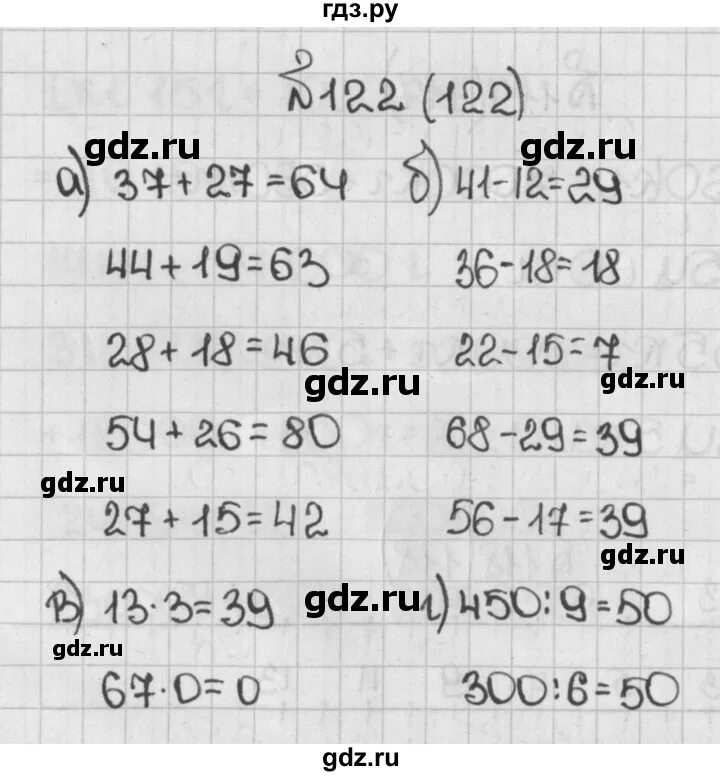 гдз.ру
№122 (122)
gdz.ru
gdz.ru
а) 37+27=64 б) 41-12=29
44+19=63 36-18=18
28+18=46 22-15=7
gdz.ru
gdz.ru
54+26=80 68-29=39
gdz.ru
27+15=42 56-17=39
gdz.ru
в) 13·3=39 г) 450:9=50
gdz.ru
gdz.ru
67·0=0 300:6=50
gdz.ru